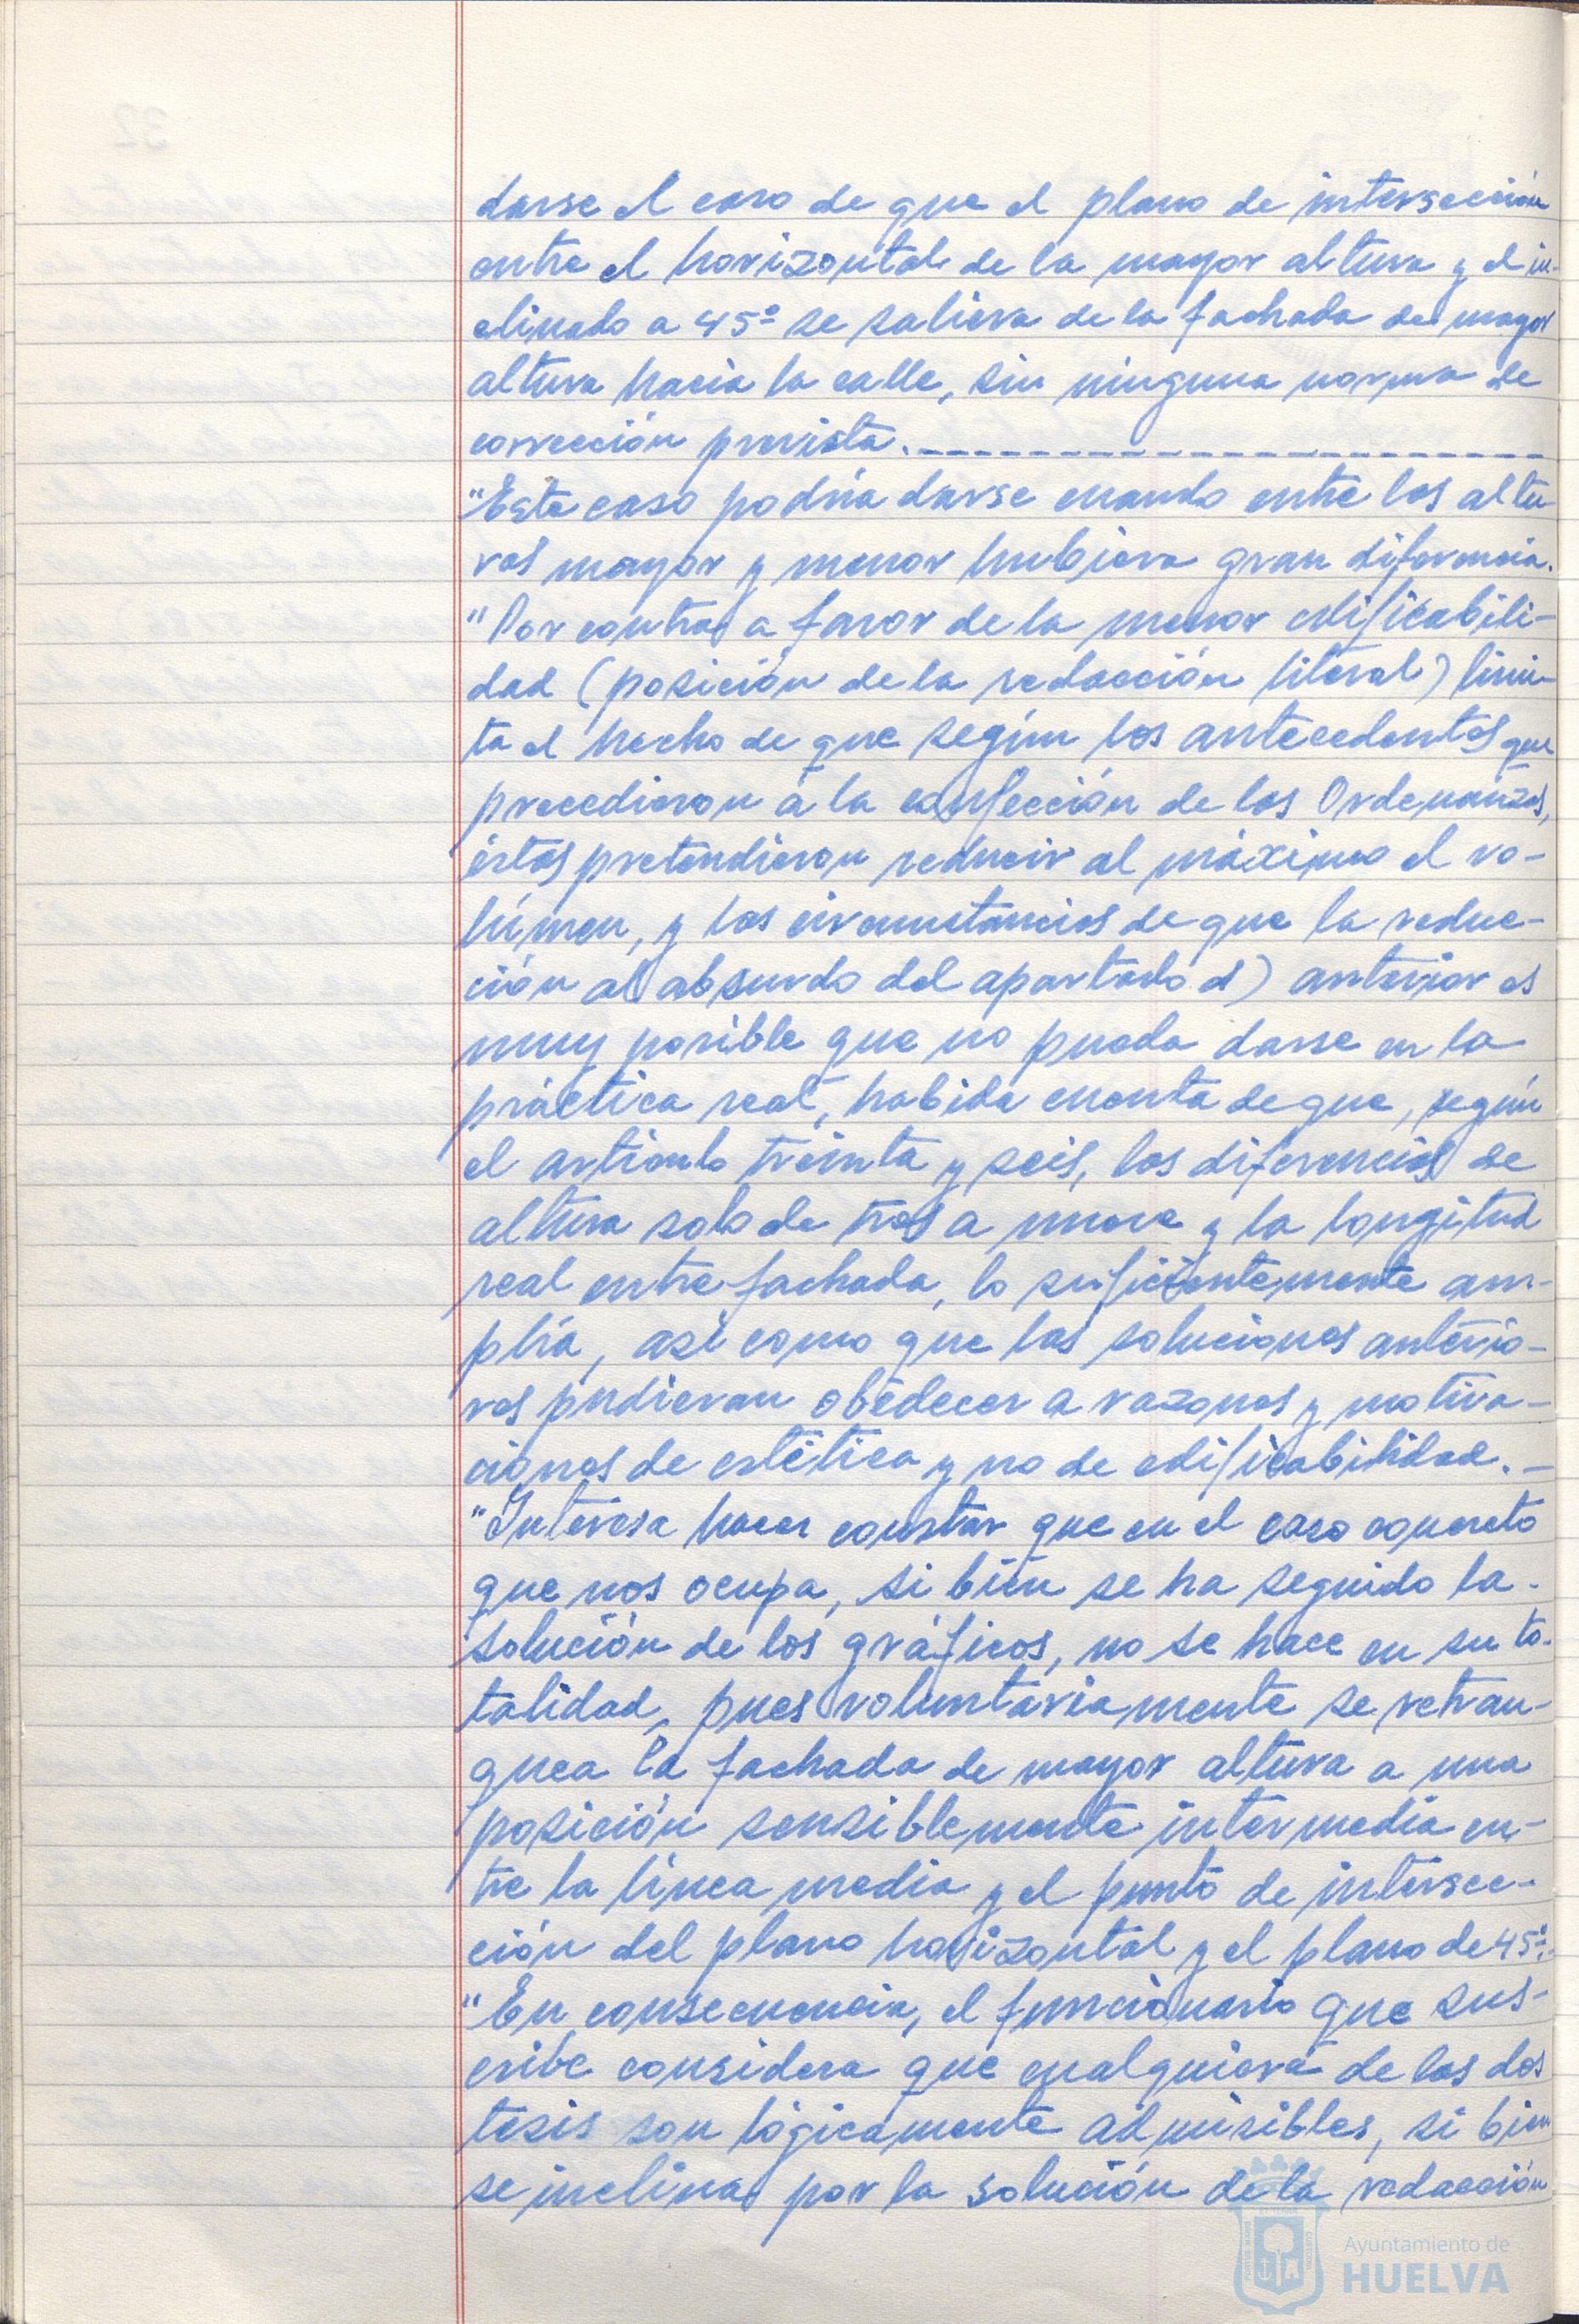 darse el caso de que el plano de intersección
entre el horizontal de la mayor altura y el in-
clinado a 45º se saliera de la fachada de mayor
altura hacia la calle, sin ninguna norma de
corrección prevista.
"Este caso podría darse cuando entre las altu-
ras mayor y menor hubiera gran diferencia.
"Por contra a favor de la menor edificabili-
dad (posición de la redacción literal) limi-
ta el hecho de que según los antecedentes que
precedieron a la confección de las Ordenanzas,
éstas pretendieron reducir al máximo el vo-
lúmen, y las circunstancias de que la reduc-
ción al absurdo del apartado d) anterior es
muy posible que no pueda darse en la
práctica real, habida cuenta de que, según
el artículo treinta y seis, las diferencias de
altura solo de tres a nueve y la longitud
real entre fachada, lo suficientemente am-
plia, así como que las soluciones anterio-
res pudieran obedecer a razones y motiva-
ciones de estética y no de edificabilidad.-
"Interesa hacer constar que en el caso concreto
que nos ocupa, si bién se ha seguido la
solución de los gráficos, no se hace en su to-
talidad, pues voluntariamente se retran-
quea la fachada de mayor altura a una
posición sensiblemente intermedia en-
tre la línea media y el punto de intersec-
ción del plano horizontal y el plano de 45º.
"En consecuencia, el funcionario que sus-
cribe considera que cualquiera de las dos
tesis son lógicamente admisibles, si bien
se inclina por la solución de la redacción
Ayuntamiento de
HUELVA